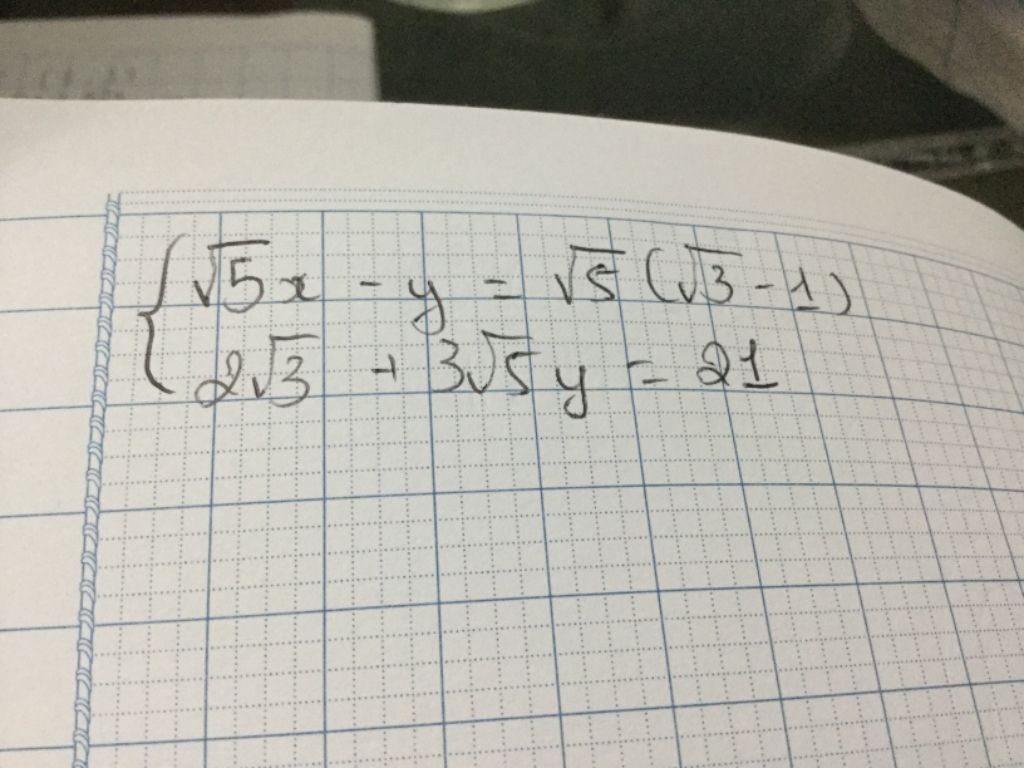 { √5x - y = √5 (√3 - 1)
2√3 + 3√5 y = 21